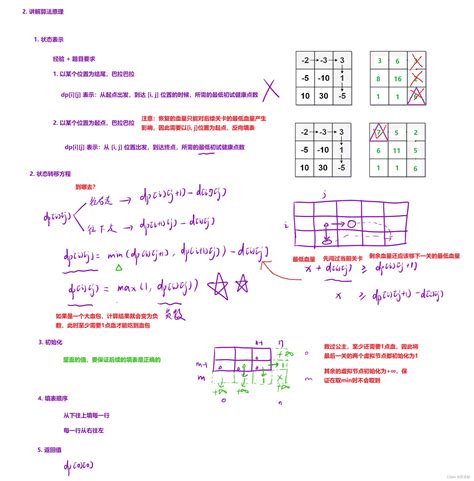 2. 讲解算法原理
1. 状态表示
经验 + 题目要求
1. 以某个位置为结尾，巴拉巴拉
dp[i][j] 表示：从起点出发，到达 [i, j] 位置的时候，所需的最低初始健康点数
2. 以某个位置为起点，巴拉巴拉
注意：恢复的血量只能对后续关卡的最低血量产生
影响，因此需要以[i, j]位置为起点，反向填表
dp[i][j] 表示：从 [i, j] 位置出发，到达终点，所需的最低初始健康点数
-2 → -3 → 3
-5 -10 1
10 30 -5
3 6
8 16
-2 → -3 → 3
-5 -10 1
10 30 -5
7 5 2
6 11 5
1 1 6
2. 状态转移方程
到哪去?
dp[i][j]
往右走 → dp[i][j+1] - d[i][j]
往下走 → dp[i+1][j] - d[i][j]
dp[i][j] = min(dp[i][j+1], dp[i+1][j]) - d[i][j]
dp[i][j] = max(1, dp[i][j])
负数
如果是一个大血包，计算结果就会变为负
数，此时至少需要1点血才能吃到血包
j
i
最低血量
先闯过当前关卡
剩余血量还应该够下一关的最低血量
x + d[i][j] ≥ dp[i][j+1]
x ≥ dp[i][j+1] - d[i][j]
3. 初始化
里面的值，要保证后续的填表是正确的
n-1 n
m-1
m
+∞
+∞ +∞ 1
0 n
救过公主，至少还需要1点血，因此将
最后一关的两个虚拟节点都初始化为1
其余的虚拟节点初始化为+∞，保
证在取min时不会取到
4. 填表顺序
从下往上填每一行
每一行从右往左
5. 返回值
dp[0][0]